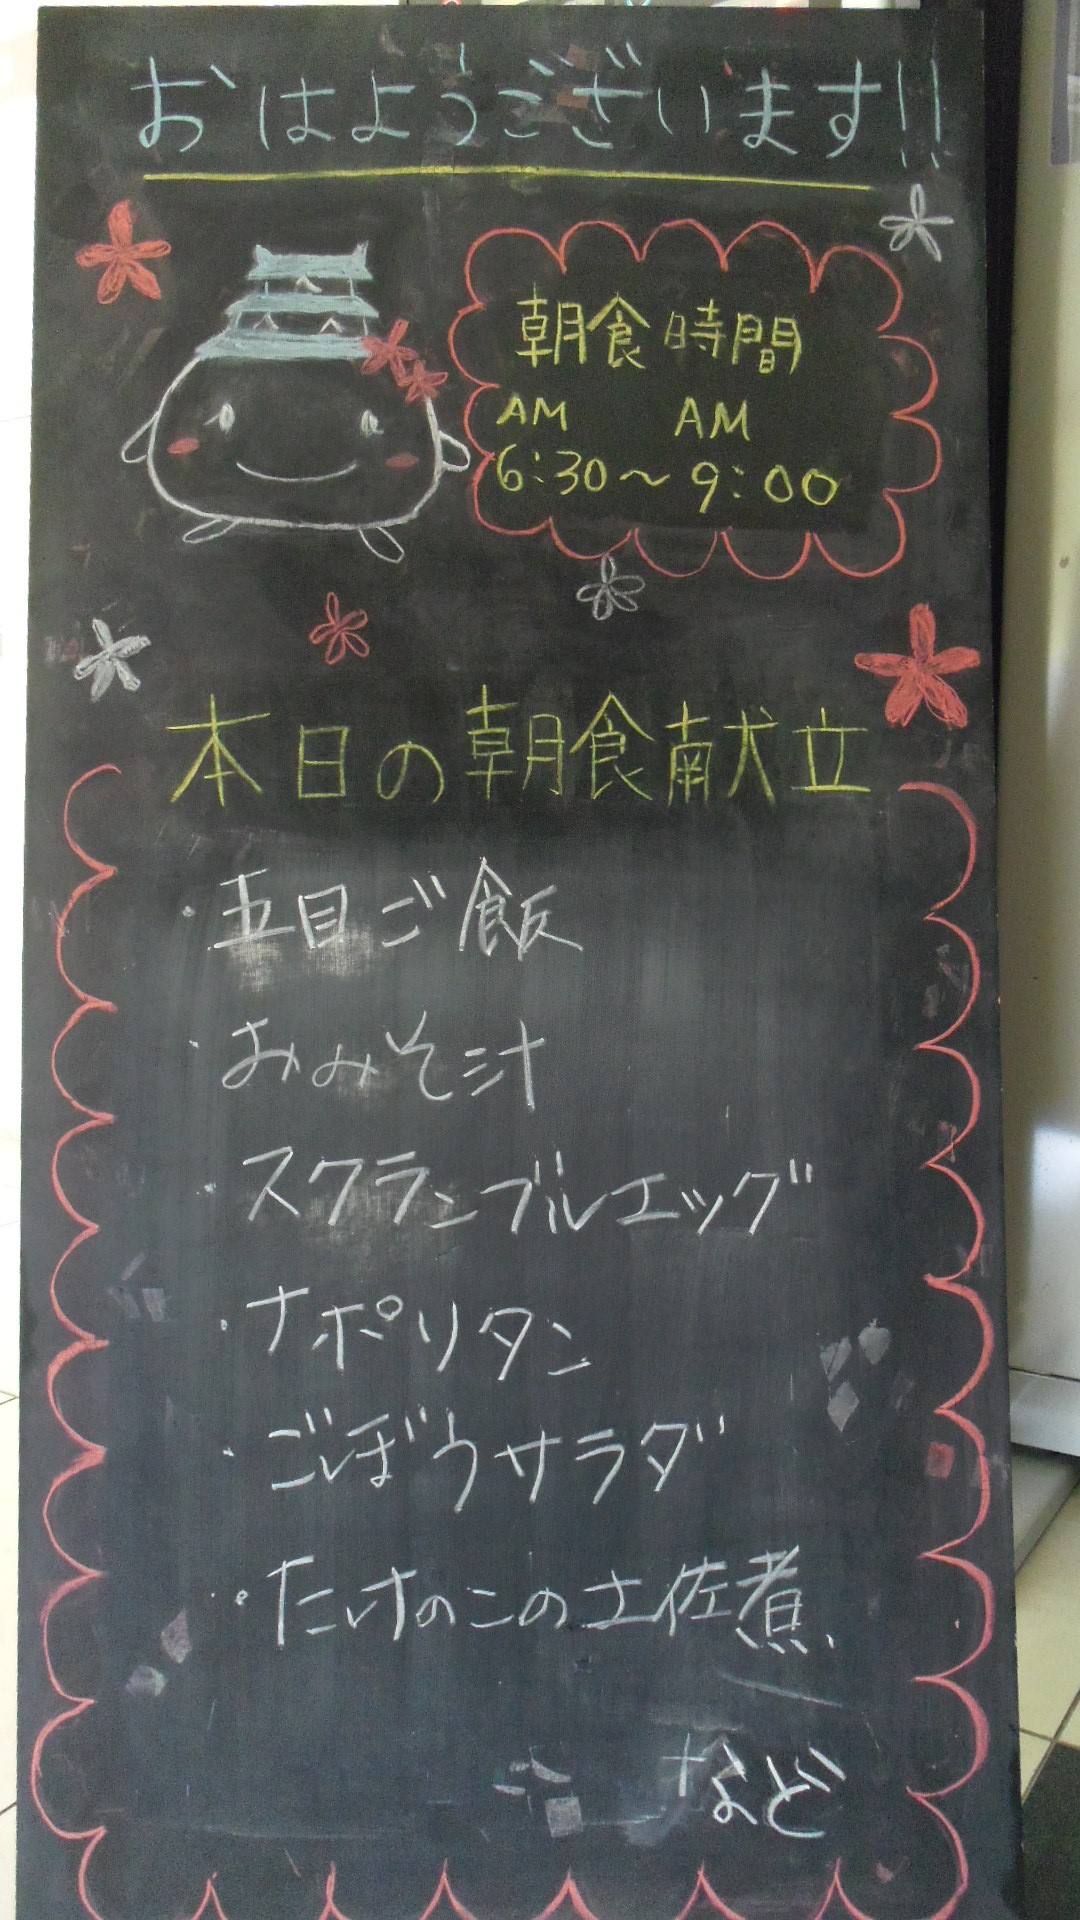 おはようございます!!
朝食時間
AM AM
6:30～9:00
本日の朝食献立
・五目ご飯
・おみそ汁
・スクランブルエッグ
・ナポリタン
・ごぼうサラダ
・たけのこの土佐煮
など